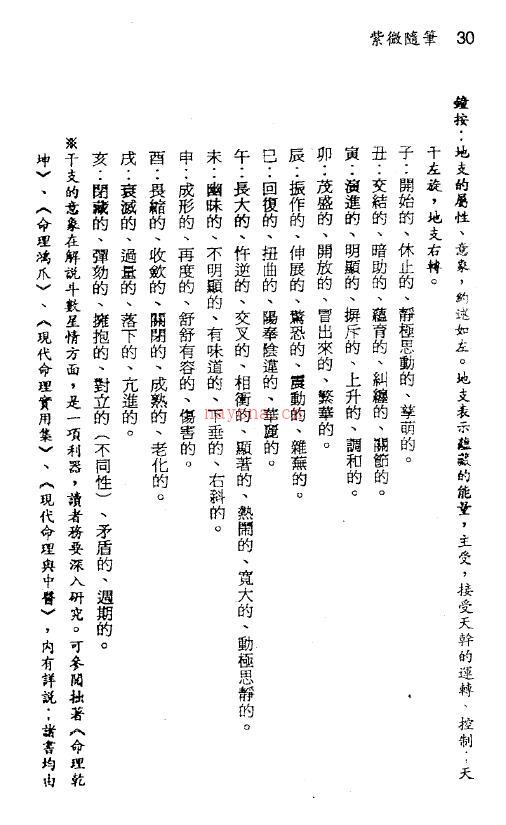 紫微隨筆 30
鐘按：地支的屬性、意象，約述如左。地支表示蘊藏的能量，主受，接受天幹的運轉、控制；天
干左旋，地支右轉。
子：開始的、休止的、靜極思動的、孳萌的。
丑：交結的、暗助的、蘊育的、糾纏的、關節的。
寅：演進的、明顯的、擯斥的、上升的、調和的。
卯：茂盛的、開放的、冒出來的、繁華的。
辰：振作的、伸展的、驚恐的、震動的、雜蕪的。
巳：回復的、扭曲的、陽奉陰違的、華麗的。
午：長大的、忤逆的、交叉的、相衝的、顯著的、熱鬧的、寬大的、動極思靜的。
未：幽昧的、不明顯的、有味道的、下垂的、右斜的。
申：成形的、再度的、舒舒有容的、傷害的。
酉：畏縮的、收斂的、關閉的、成熟的、老化的。
戌：衰滅的、過量的、落下的、亢進的。
亥：閉藏的、彈劾的、擁抱的、對立的（不同性）、矛盾的、週期的。
※干支的意象在解說斗數星情方面，是一項利器，讀者務要深入研究。可參閱拙著《命理乾
坤》、《命理鴻爪》、《現代命理實用集》、《現代命理與中醫》，內有詳說；諸書均由